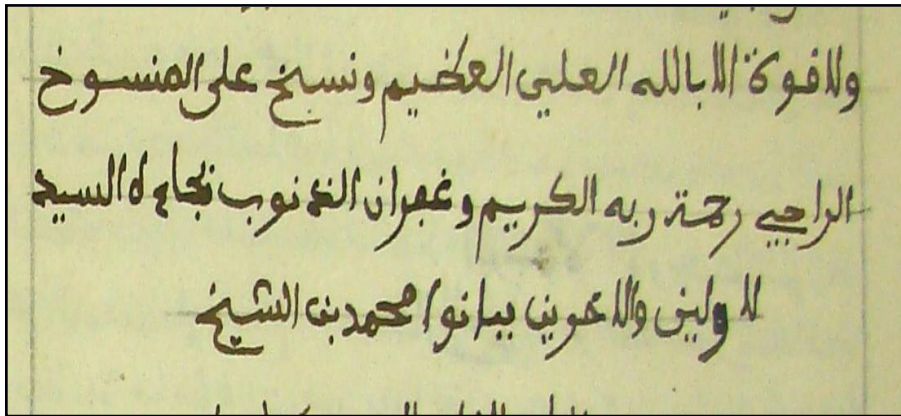 ولا قوة الا بالله العلي العظيم ونسخ على المنسوخ
الراجي رحمة ربه الكريم وغفران الذنوب بجاه السيد
لاولين والاخرين محمد بن الشيخ